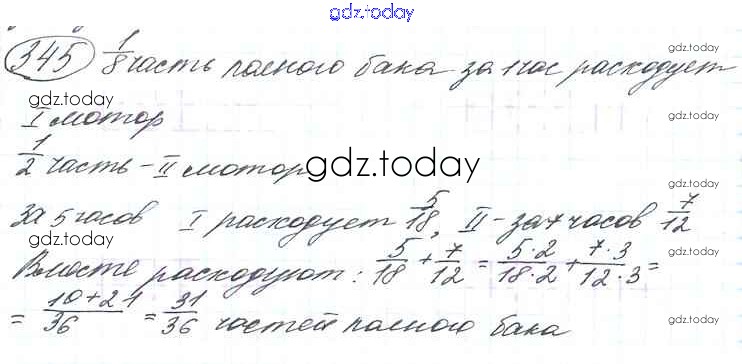 gdz.today
345 1/8 часть полного бака за 1 час расходует
gdz.today
gdz.today
gdz.today
I мотор
1/2 часть – II мотор
gdz.today
gdz.today
За 5 часов I расходует 5/18, II – за 7 часов 7/12
gdz.today
gdz.today
Вместе расходуют: 5/18 + 7/12 = 5·2/18·2 + 7·3/12·3 =
gdz.today
= 10+21/36 = 31/36 частей полного бака
gdz.today